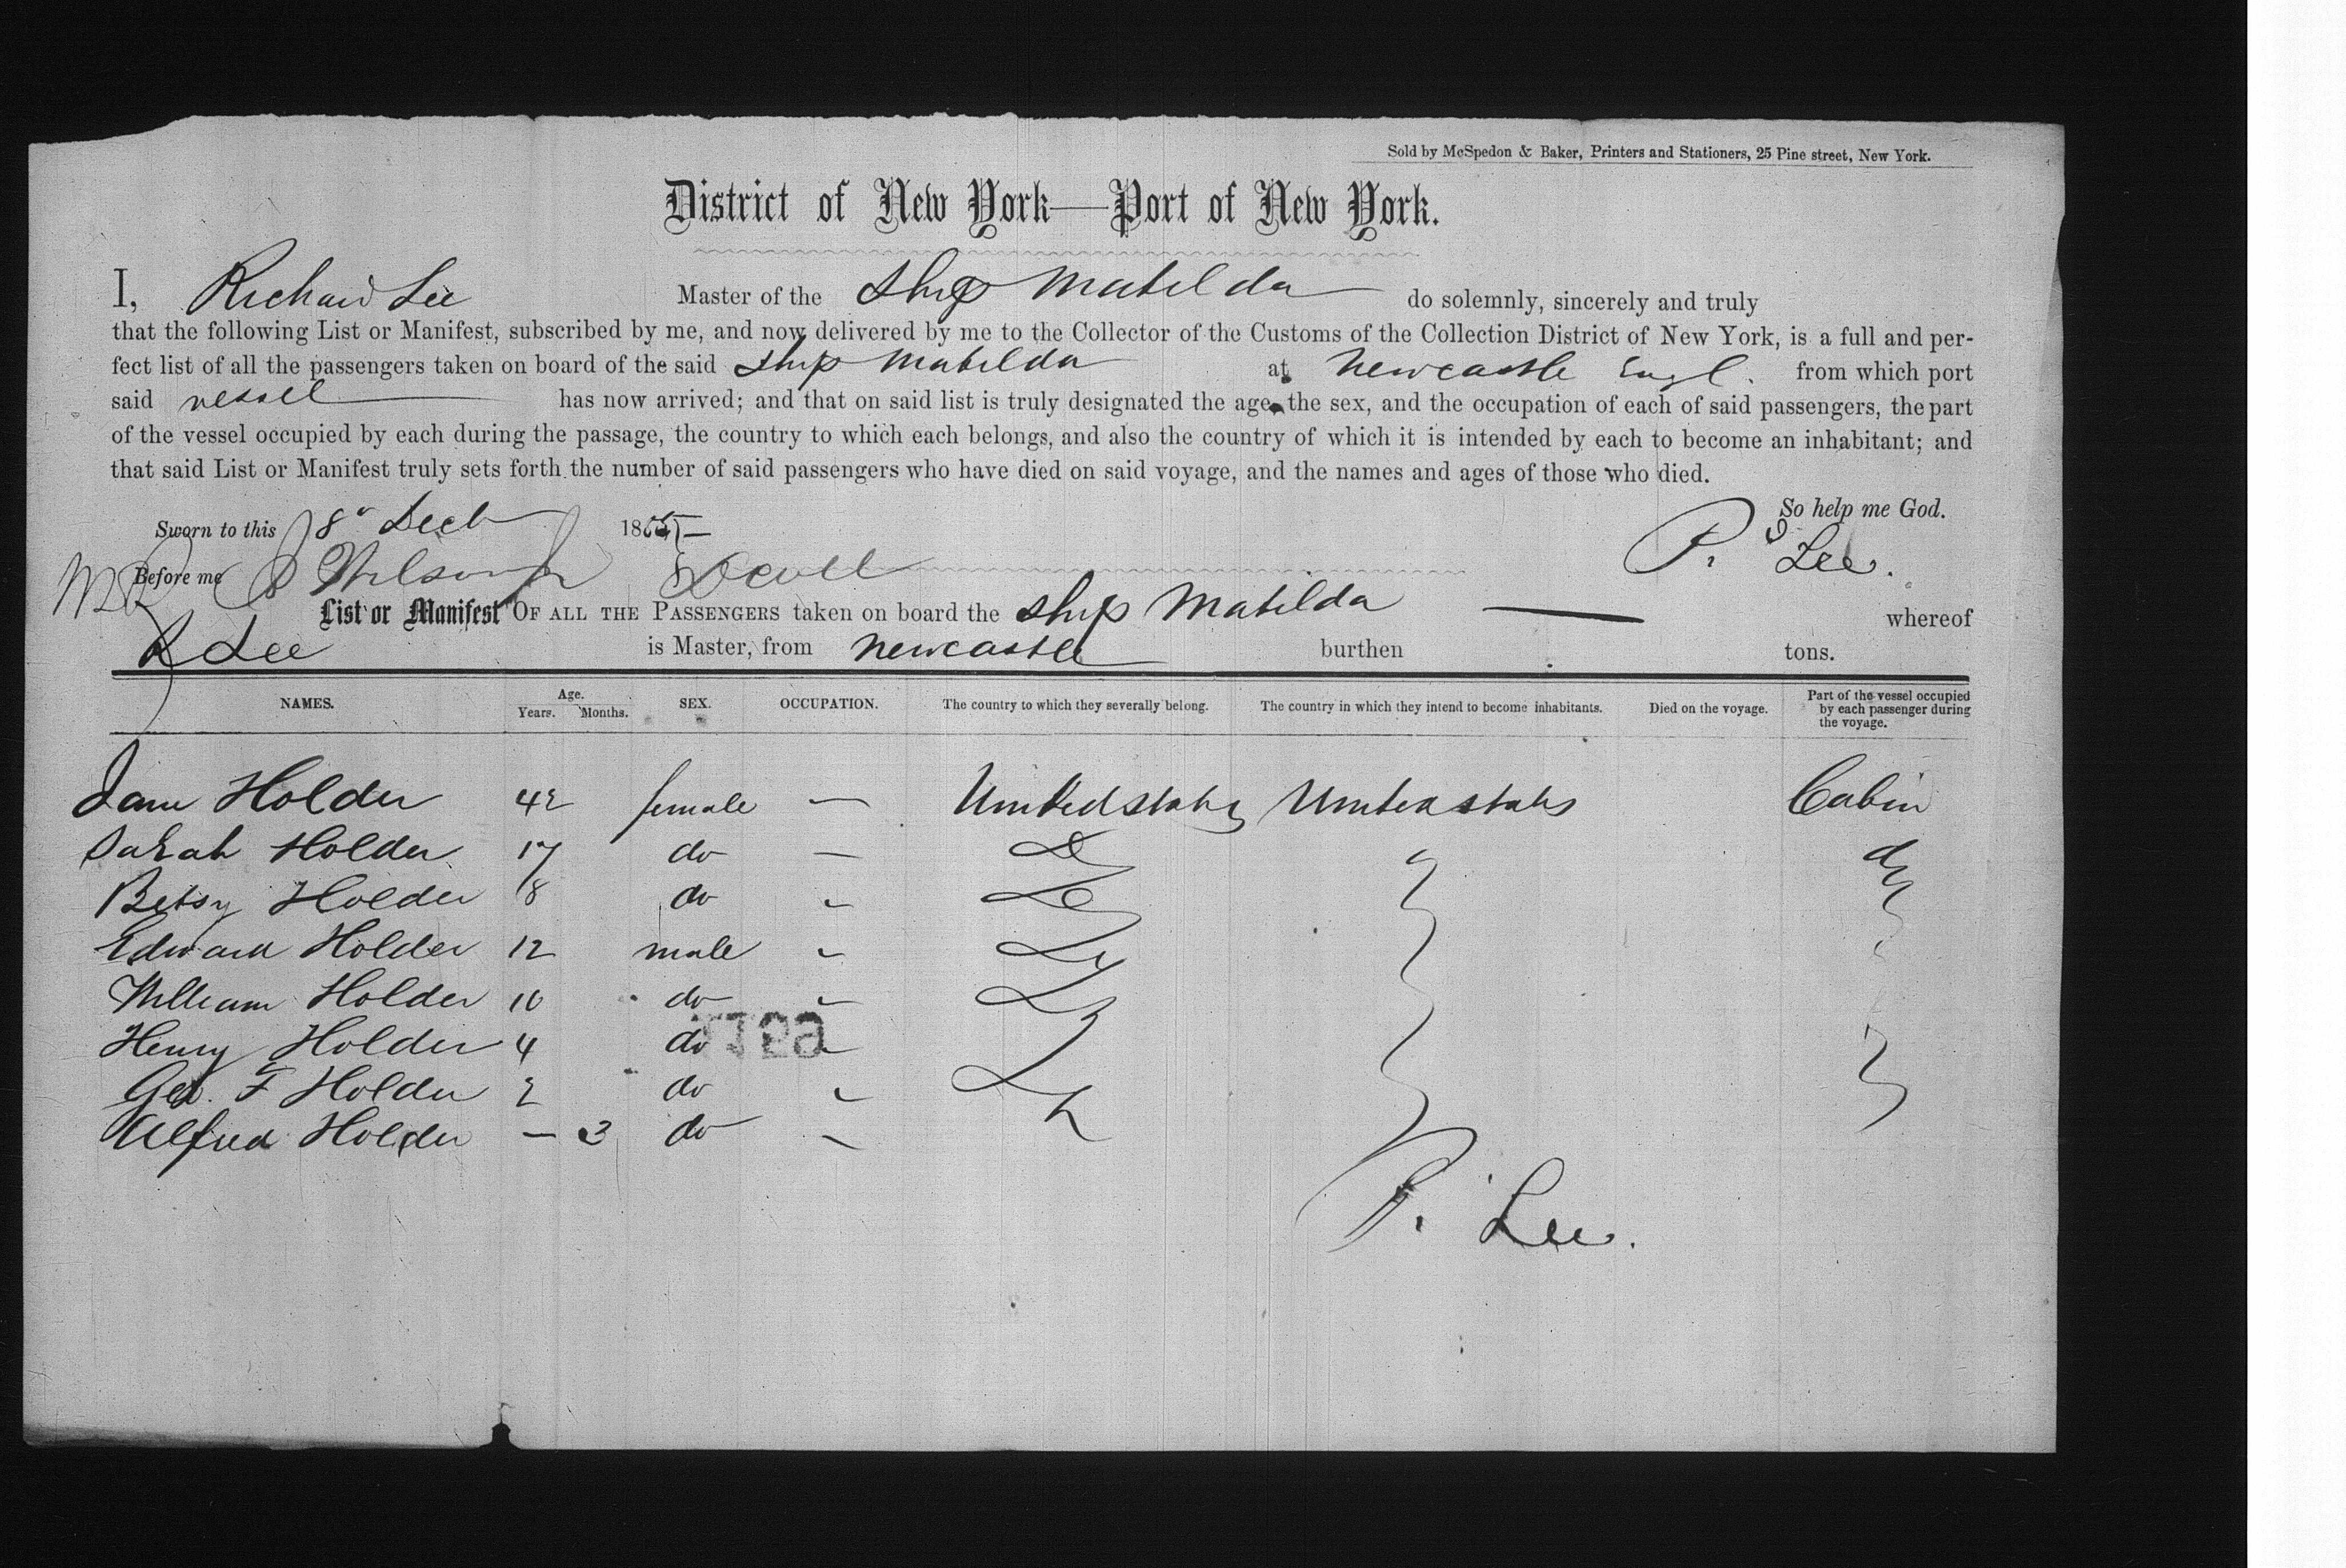 Sold by McSpedon & Baker, Printers and Stationers, 25 Pine street, New York.
District of New York—Port of New York.
I, Richard Lee Master of the Ship Matilda do solemnly, sincerely and truly
that the following List or Manifest, subscribed by me, and now delivered by me to the Collector of the Customs of the Collection District of New York, is a full and per-
fect list of all the passengers taken on board of the said Ship Matilda at Newcastle Engl. from which port
said vessel has now arrived; and that on said list is truly designated the age, the sex, and the occupation of each of said passengers, the part
of the vessel occupied by each during the passage, the country to which each belongs, and also the country of which it is intended by each to become an inhabitant; and
that said List or Manifest truly sets forth the number of said passengers who have died on said voyage, and the names and ages of those who died.
So help me God.
Sworn to this 8" Decb 1855
R. Lee.
Before me
List or Manifest OF ALL THE PASSENGERS taken on board the Ship Matilda — whereof
R Lee is Master, from Newcastle burthen tons.
NAMES. Age. Years. Months. SEX. OCCUPATION. The country to which they severally belong. The country in which they intend to become inhabitants. Died on the voyage. Part of the vessel occupied by each passenger during the voyage.
Jane Holder 42 female — United States United States Cabin
Sarah Holder 17 do — Do do
Betsy Holder 8 do - Do
Edward Holder 12 male - Do
William Holder 10 do - Do
Henry Holder 4 do -
Geo. F Holder 2 do - Do
Alfred Holder — 3 do -
R. Lee.